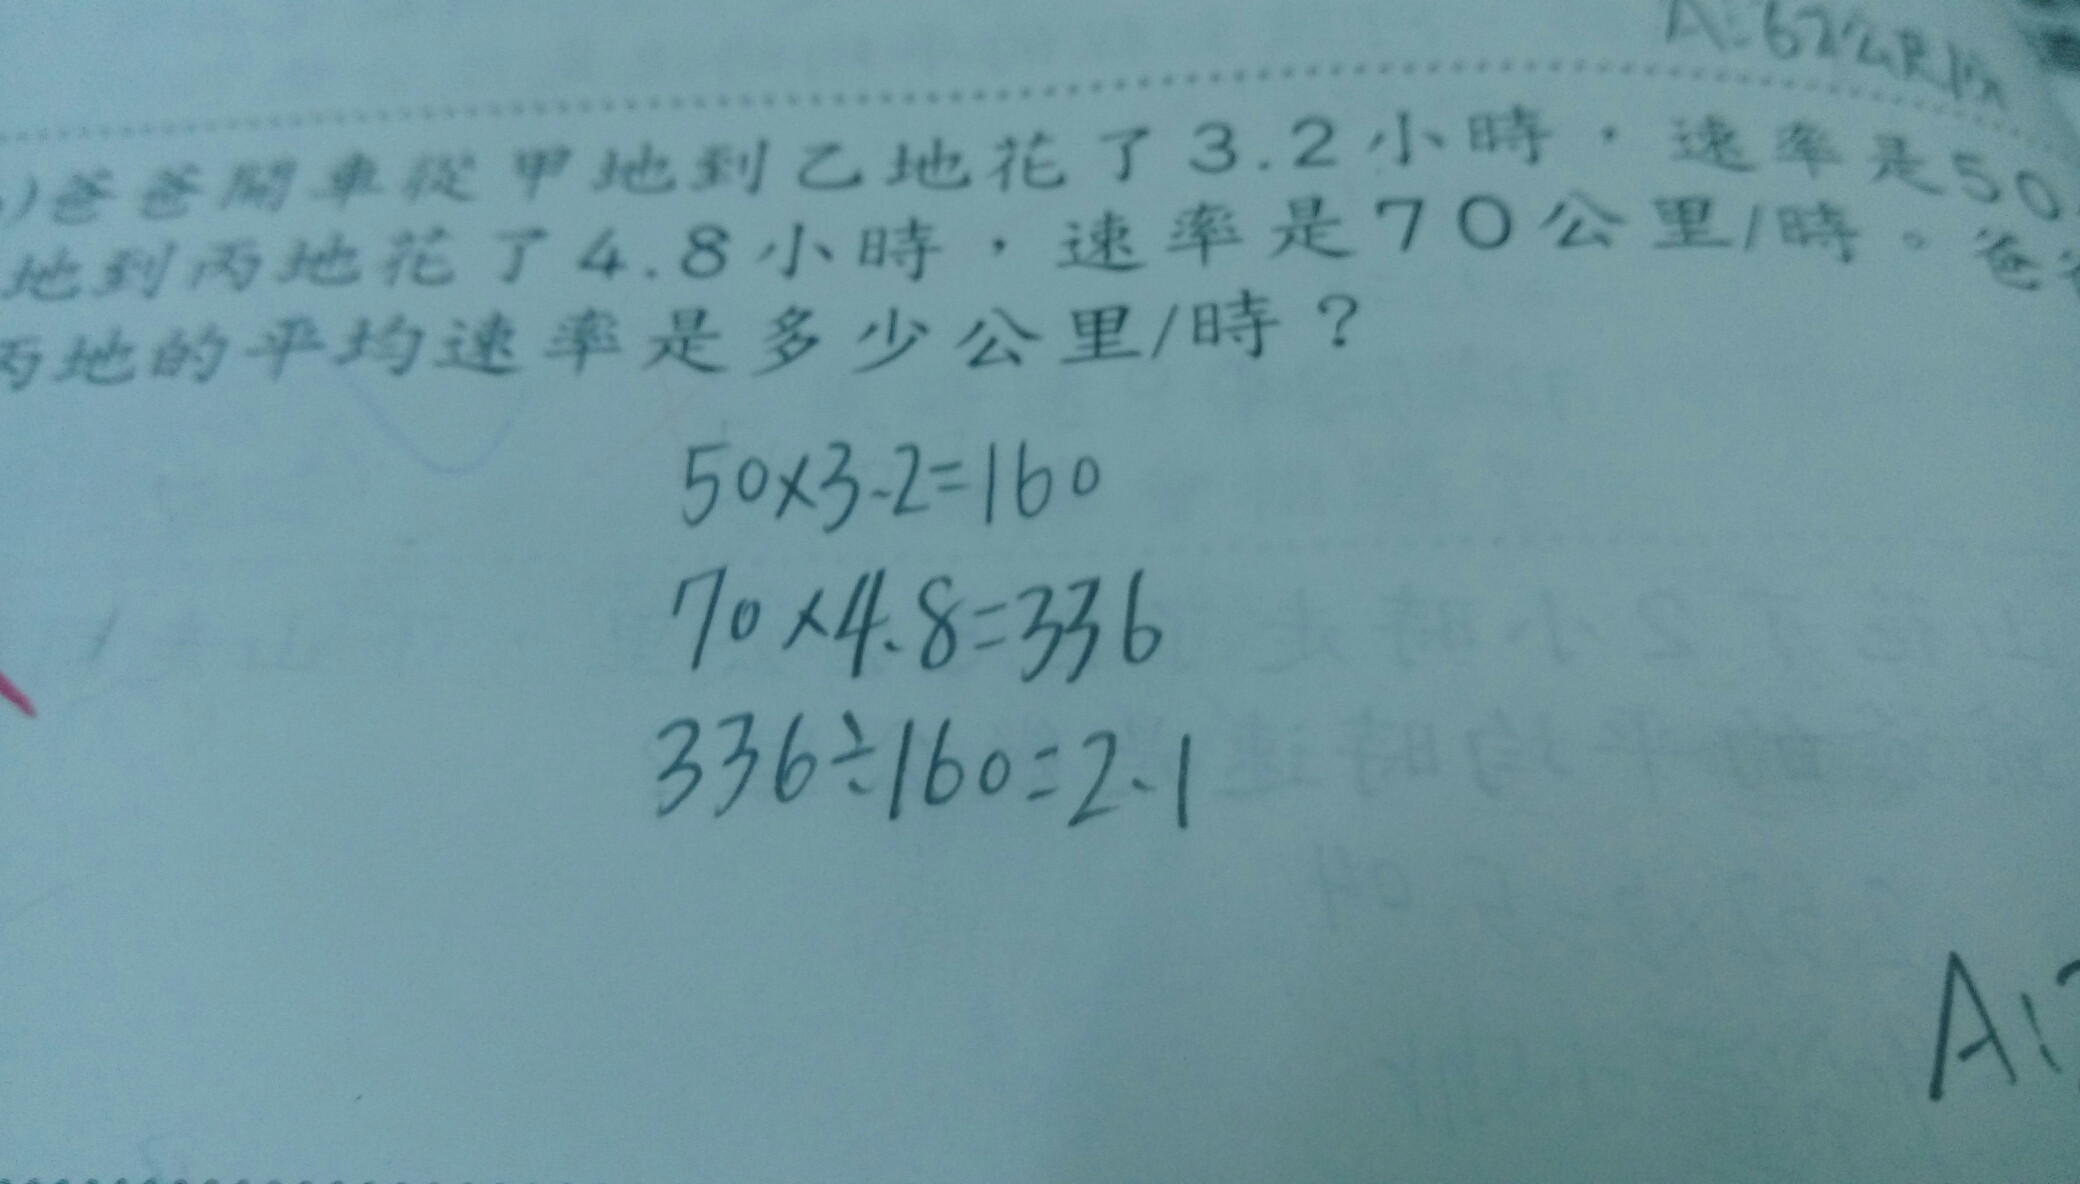 A:62公里/時
)爸爸開車從甲地到乙地花了3.2小時，速率是50
地到丙地花了4.8小時，速率是70公里/時。爸
丙地的平均速率是多少公里/時？
50×3.2=160
70×4.8=336
336÷160=2.1
A: